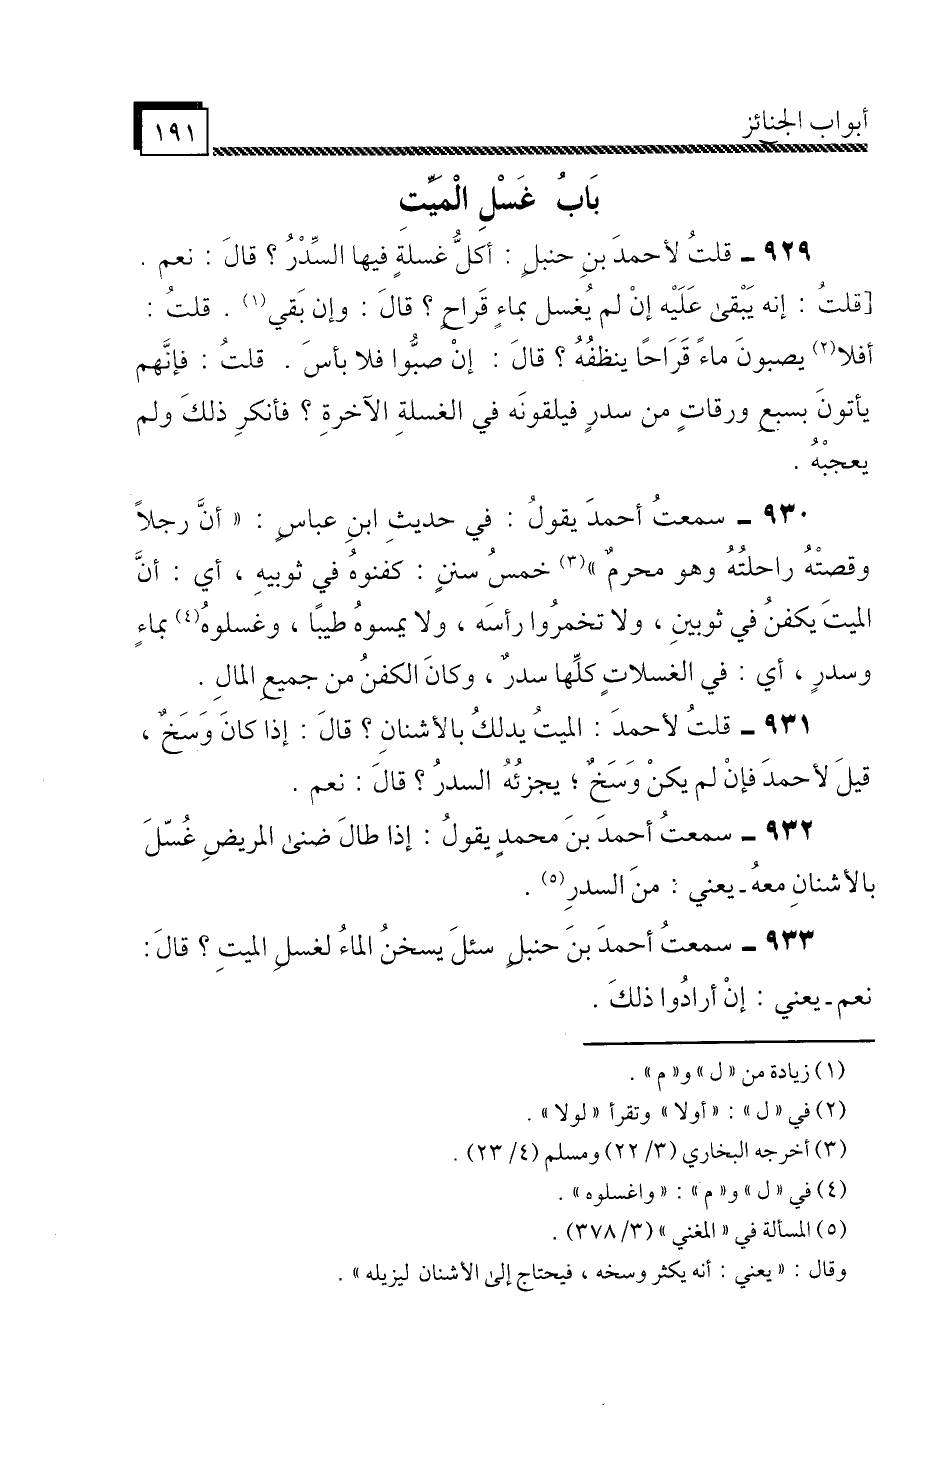 أبواب الجنائز
١٩١
بَابُ غَسْلِ الْمَيِّتِ
٩٢٩ ـ قلتُ لأحمدَ بنِ حنبلٍ : أكلُّ غسلةٍ فيها السِّدْرُ ؟ قالَ : نعم .
[قلتُ : إنه يَبْقىٰ عَلَيْه إنْ لم يُغسل بماءٍ قَراحٍ ؟ قالَ : وإن بَقي(١) . قلتُ :
أفلا(٢) يصبونَ ماءً قَرَاحًا ينظفُهُ ؟ قالَ : إنْ صبُّوا فلا بأسَ . قلتُ : فإنَّهم
يأتونَ بسبعِ ورقاتٍ من سدرٍ فيلقونَه في الغسلةِ الآخرةِ ؟ فأنكرِ ذلكَ ولم
يعجبْهُ .
٩٣٠ ـ سمعتُ أحمدَ يقولُ : في حديثِ ابنِ عباسٍ : « أنَّ رجلاً
وقصتْهُ راحلتُهُ وهو محرمٌ »(٣) خمسُ سننٍ : كفنوهُ في ثوبيهِ ، أي : أنَّ
الميتَ يكفنُ في ثوبينِ ، ولا تخمرُوا رأسَه ، ولا يمسوهُ طيبًا ، وغسلوهُ(٤) بماءٍ
وسدرٍ ، أي : في الغسلاتِ كلِّها سدرٌ ، وكانَ الكفنُ من جميعِ المالِ .
٩٣١ ـ قلتُ لأحمدَ : الميتُ يدلكُ بالأشنانِ ؟ قالَ : إذا كانَ وَسَخٌ ،
قيلَ لأحمدَ فإنْ لم يكنْ وَسَخٌ ؛ يجزئُهُ السدرُ ؟ قالَ : نعم .
٩٣٢ ـ سمعتُ أحمدَ بنَ محمدٍ يقولُ : إذا طالَ ضنىٰ المريضِ غُسِّلَ
بالأشنانِ معهُ ـ يعني : منَ السدرِ(٥) .
٩٣٣ ـ سمعتُ أحمدَ بنَ حنبلٍ سئلَ يسخنُ الماءُ لغسلِ الميتِ ؟ قالَ :
نعم ـ يعني : إنْ أرادُوا ذلكَ .
(١) زيادة من « ل » و« م » .
(٢) في « ل » : « أولا » وتقرأ « لولا » .
(٣) أخرجه البخاري (٣/ ٢٢) ومسلم (٤/ ٢٣) .
(٤) في « ل » و« م » : « واغسلوه » .
(٥) المسألة في « المغني » (٣/ ٣٧٨) .
وقال : « يعني : أنه يكثر وسخه ، فيحتاج إلىٰ الأشنان ليزيله » .